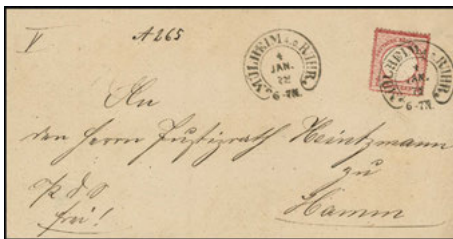 V A 265
MÜLHEIM a. d. RUHR.
1
JAN.
72
6-7N.
MÜLHEIM a. d. RUHR.
1
JAN.
72
6-7N.
An
den Herrn Justizrath Heintzmann
zu
Hamm
frei!